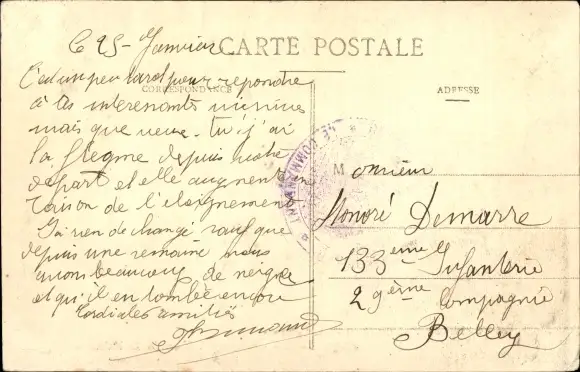 Le 25 - Janvier
CARTE POSTALE
CORRESPONDANCE
ADRESSE
C'est un peu tard pour repondre
à tes interessants
mais que veux-tu j'ai
la flegme depuis notre
départ et elle augmente en
raison de l'eloignement
J'ai rien de changé sauf que
depuis une semaine nous
avons beaucoup de neige
et qu'il en tombe encore
Cordiales amitiés
LE COMMANDANT
Monsieur
Honoré Demarre
133ème Infanterie
29ème Compagnie
Belley